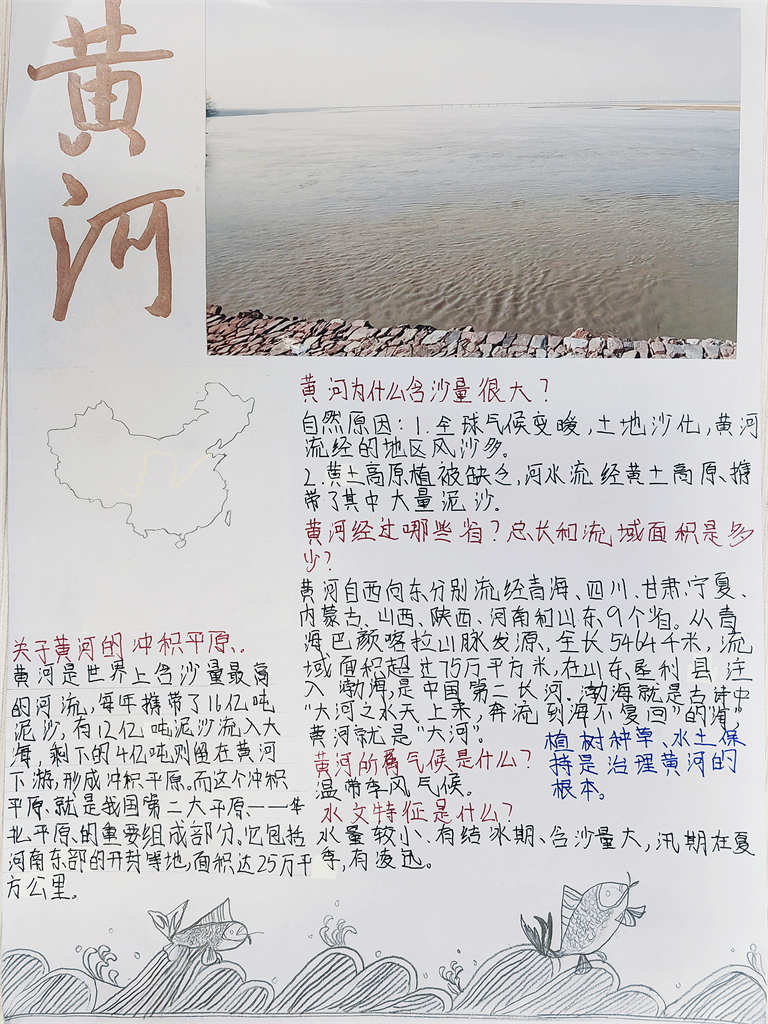 黄
河
黄河为什么含沙量很大？
自然原因：1.全球气候变暖，土地沙化，黄河
流经的地区风沙多。
2.黄土高原植被缺乏，河水流经黄土高原、携
带了其中大量泥沙。
黄河经过哪些省？总长和流域面积是多
少？
黄河自西向东分别流经青海、四川、甘肃、宁夏、
内蒙古、山西、陕西、河南和山东9个省。从青
海巴颜喀拉山脉发源，全长5464千米，流
域面积超过75万平方米，在山东垦利县注
入渤海，是中国第二长河。渤海就是古诗中
“大河之水天上来，奔流到海不复回”的“海”
黄河就是“大河”。
黄河所属气候是什么？
温带季风气候。
水文特征是什么？
水量较小、有结冰期、含沙量大，汛期在夏
季，有凌汛。
植树种草、水土保
持是治理黄河的
根本。
关于黄河的冲积平原。
黄河是世界上含沙量最高
的河流，每年携带了16亿吨
泥沙，有12亿吨泥沙流入大
海，剩下的4亿吨则留在黄河
下游，形成冲积平原。而这个冲积
平原就是我国第二大平原——华
北平原的重要组成部分。它包括
河南东部的开封等地，面积达25万平
方公里。